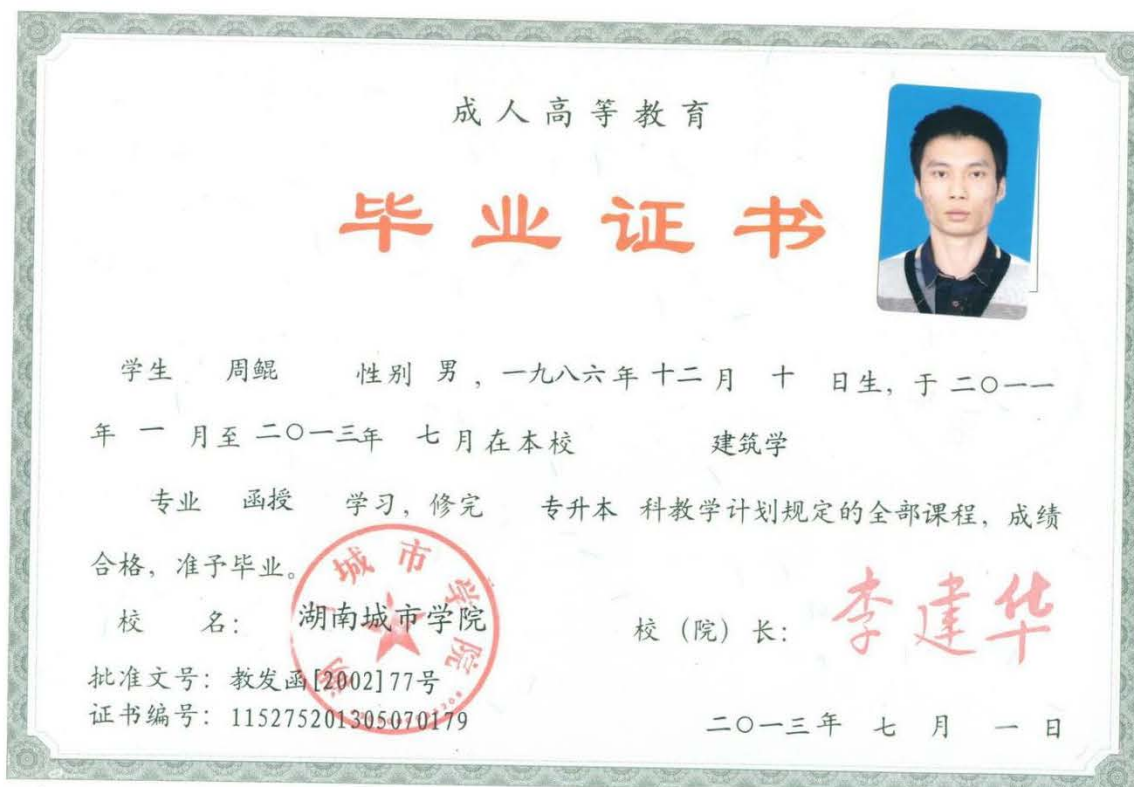 成人高等教育
毕业证书
学生 周鲲 性别 男，一九八六年十二月 十 日生，于二〇一一
年 一 月至二〇一三年 七月在本校 建筑学
专业 函授 学习，修完 专升本 科教学计划规定的全部课程，成绩
合格，准予毕业。
校 名：湖南城市学院
城市学院
校（院）长：李建华
批准文号：教发函[2002]77号
证书编号：115275201305070179
二〇一三年 七 月 一 日